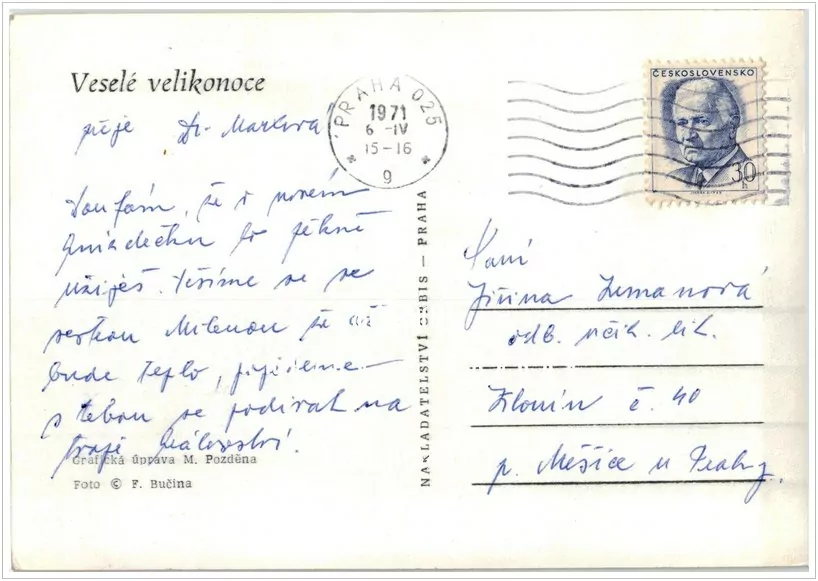 Veselé velikonoce
přeje Dr. Markova
Doufám, že v novém
hniadečku to pěkně
užiješ. Těšíme se se
sestrou Milenou že až
bude teplo, přijedeme
s tebou se podívat na
tvoje království.
Grafická úprava M. Pozděna
Foto © F. Bučina
NAKLADATELSTVÍ ORBIS — PRAHA
PRAHA 025
1971
6 -IV
15-16
9
ČESKOSLOVENSKO
30
h
Paní
Jiřina Zemanová
odb. učit. lit.
Zlonín č. 40
p. Měšice u Prahy